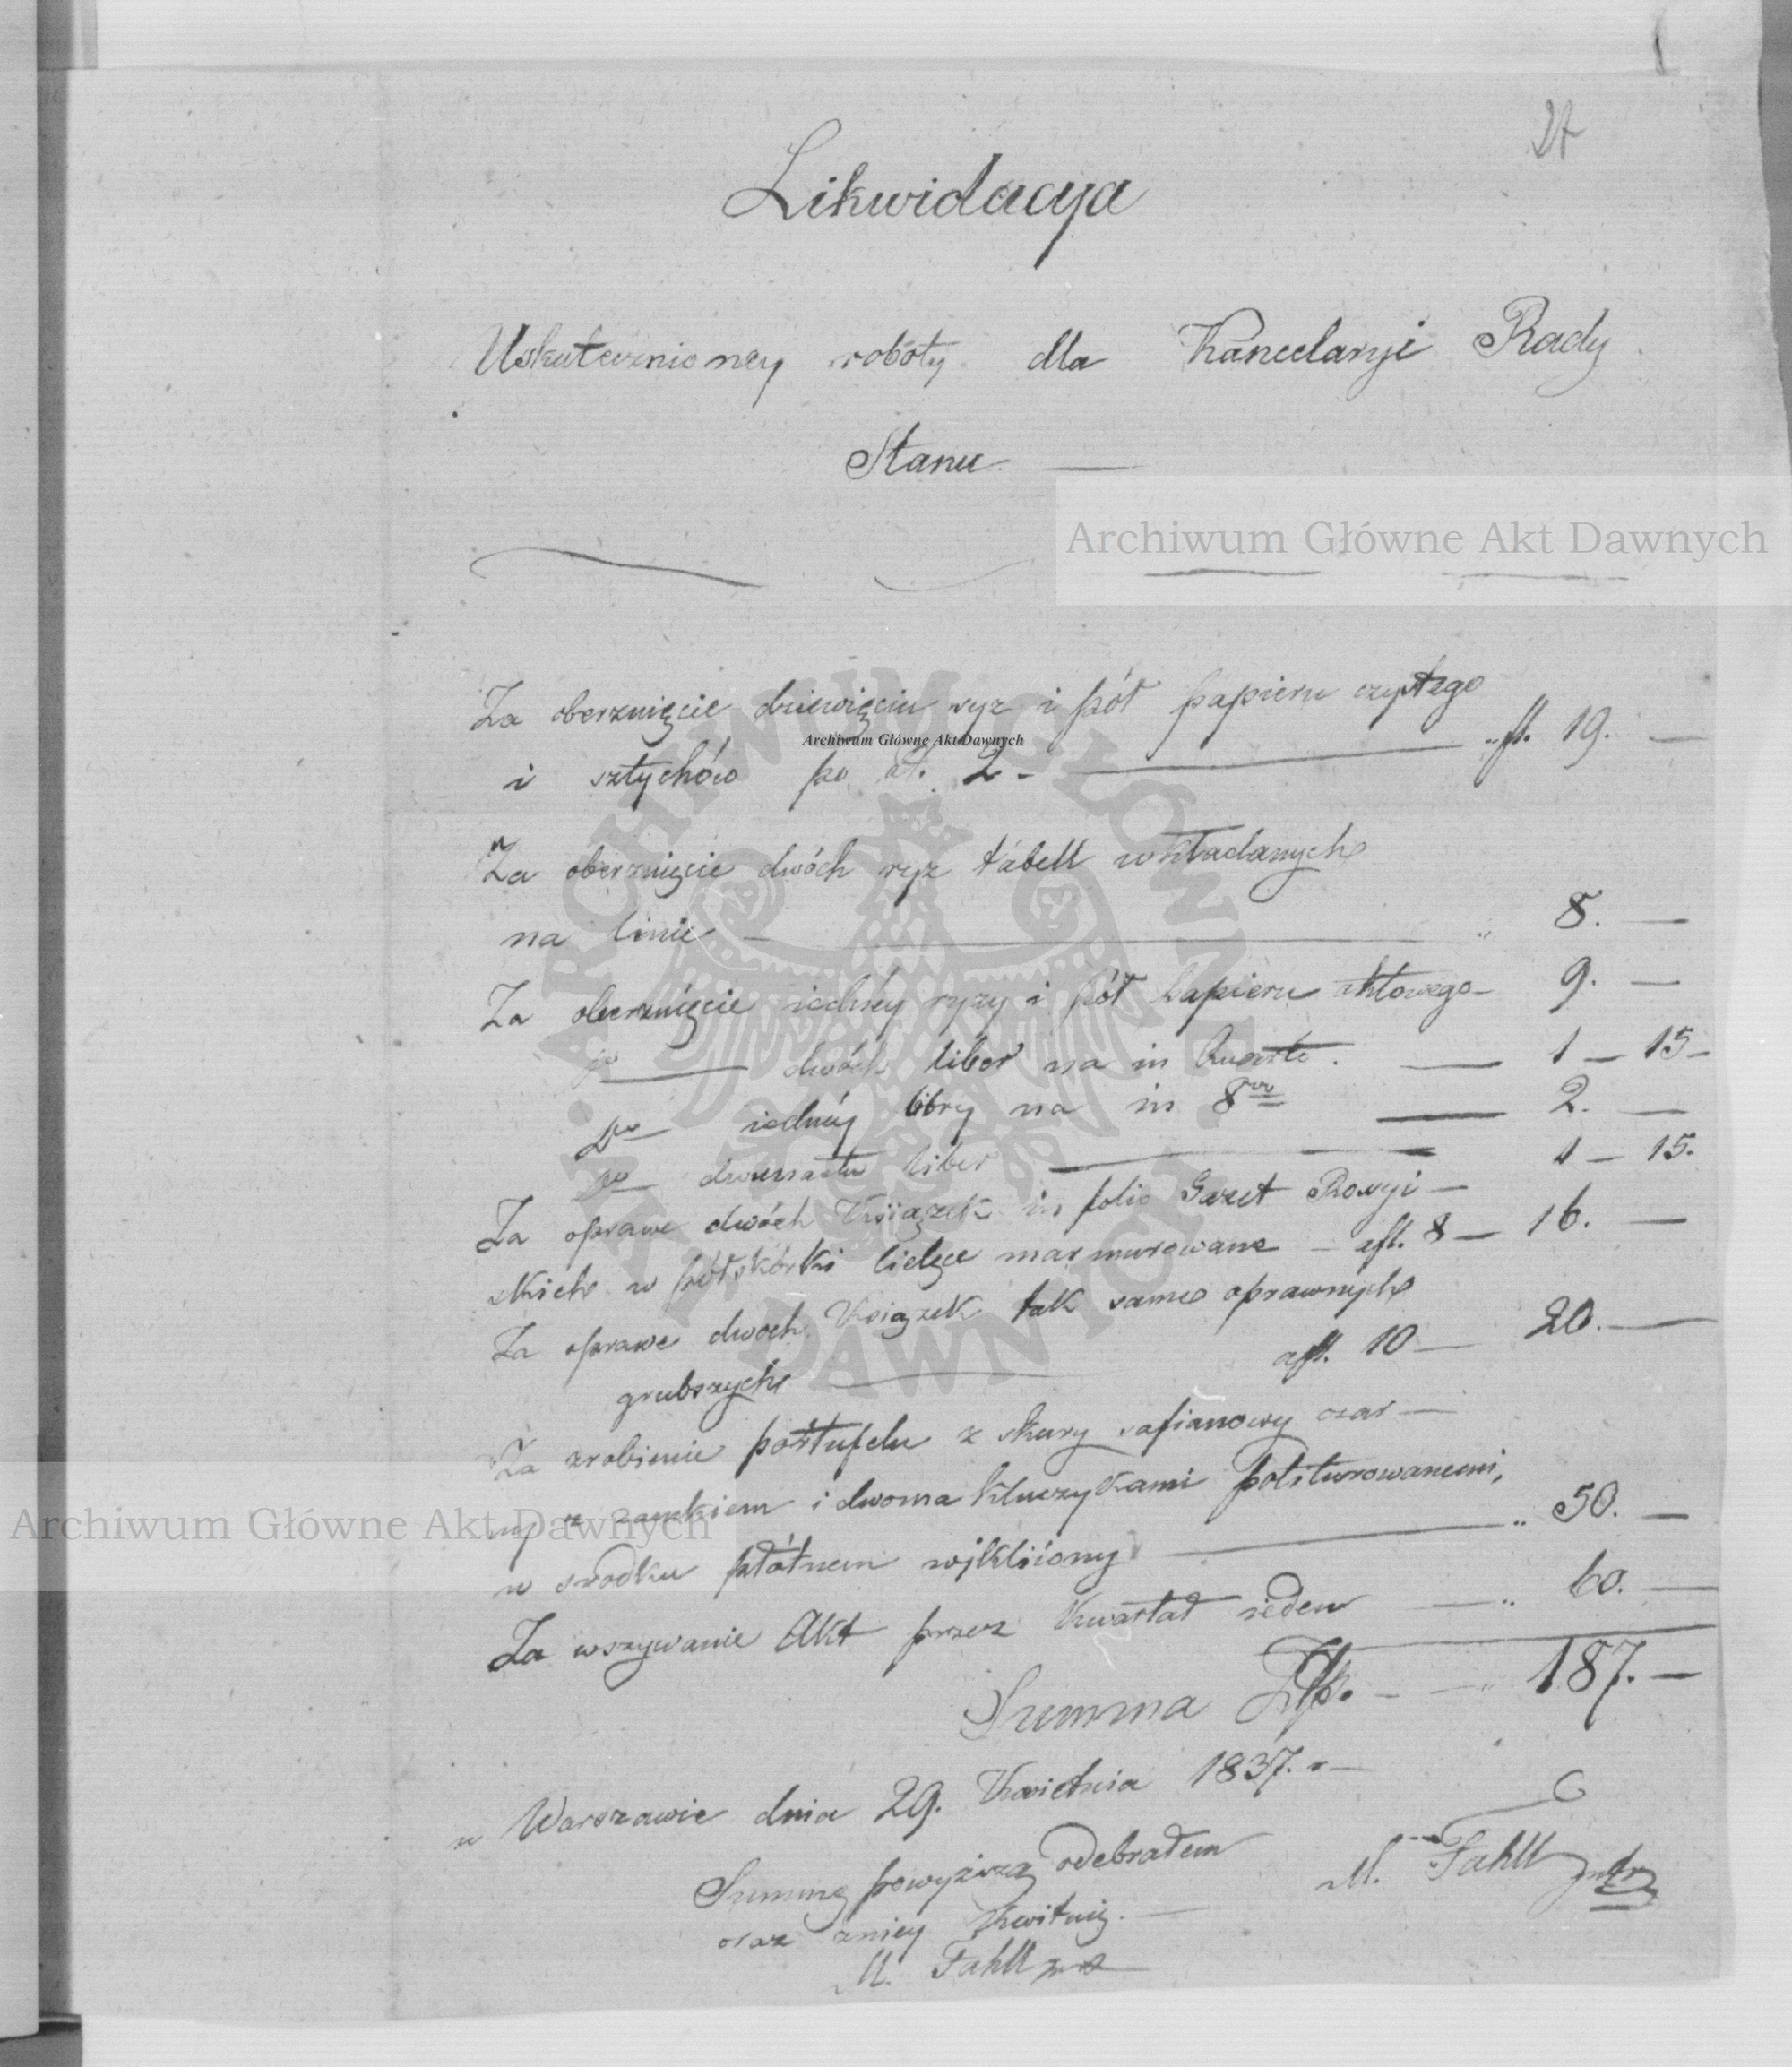 27
Likwidacya
Uskutecznioney roboty dla Kancelaryi Rady
Stanu
Archiwum Główne Akt Dawnych
Za oberznięcie dziewięciu ryz i pół papieru czystego
Archiwum Główne Akt Dawnych
i sztychów po zł. 2 - „ fl. 19. —
Za oberznięcie dwóch ryz tabell wkładanych
na linie — „ 8. —
Za oberznięcie iedney ryzy i pół papieru aktowego — 9. —
do — dwóch liber na in Quarto. — 1 — 15 —
do — iedney libry na in 8vo — 2. —
do — dwunastu liber — 1 — 15.
Za oprawę dwóch Książek in folio Gazet Rossyi —
skich w półskórki cielęce marmurowane — a fl. 8 — 16. —
Za oprawę dwóch Książek tak samo oprawnych
grubszych — a fl. 10 — 20. —
Za zrobienie portufelu z skury safianowy czar —
ny z zamkiem i dwoma kluczykami politurowanemi,
Archiwum Główne Akt Dawnych
w srodku płótnem wyklióny — „ 50. —
Za wszywanie Akt przez Kwartał ieden — „ 60. —
Summa Złp. — „ 187. —
w Warszawie dnia 29. Kwietnia 1837. r —
Summę powyższą odebrałem
M. Fahll
oraz zniey Kwituię. —
M. Fahll
ARCHIWUM GŁÓWNE AKT DAWNYCH